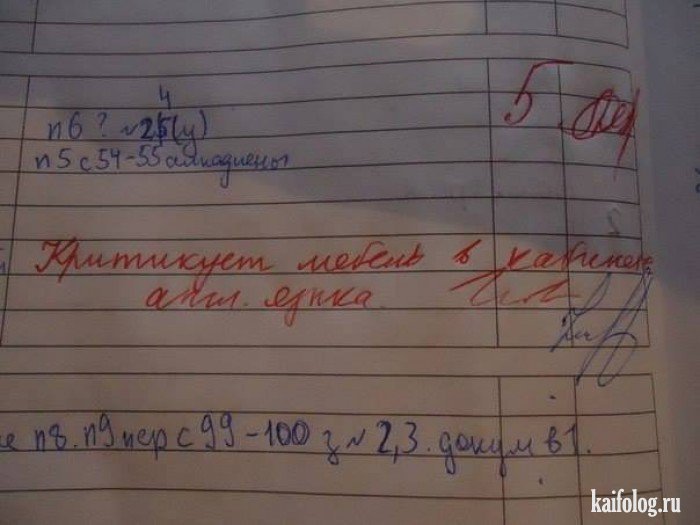 4
п6 ? №25(у)
5
п5 с54-55 алкадиены
Критикует мебель в кабинете
англ. языка.
п8. п9 пер с 99-100 з № 2,3. докум в 1.
kaifolog.ru